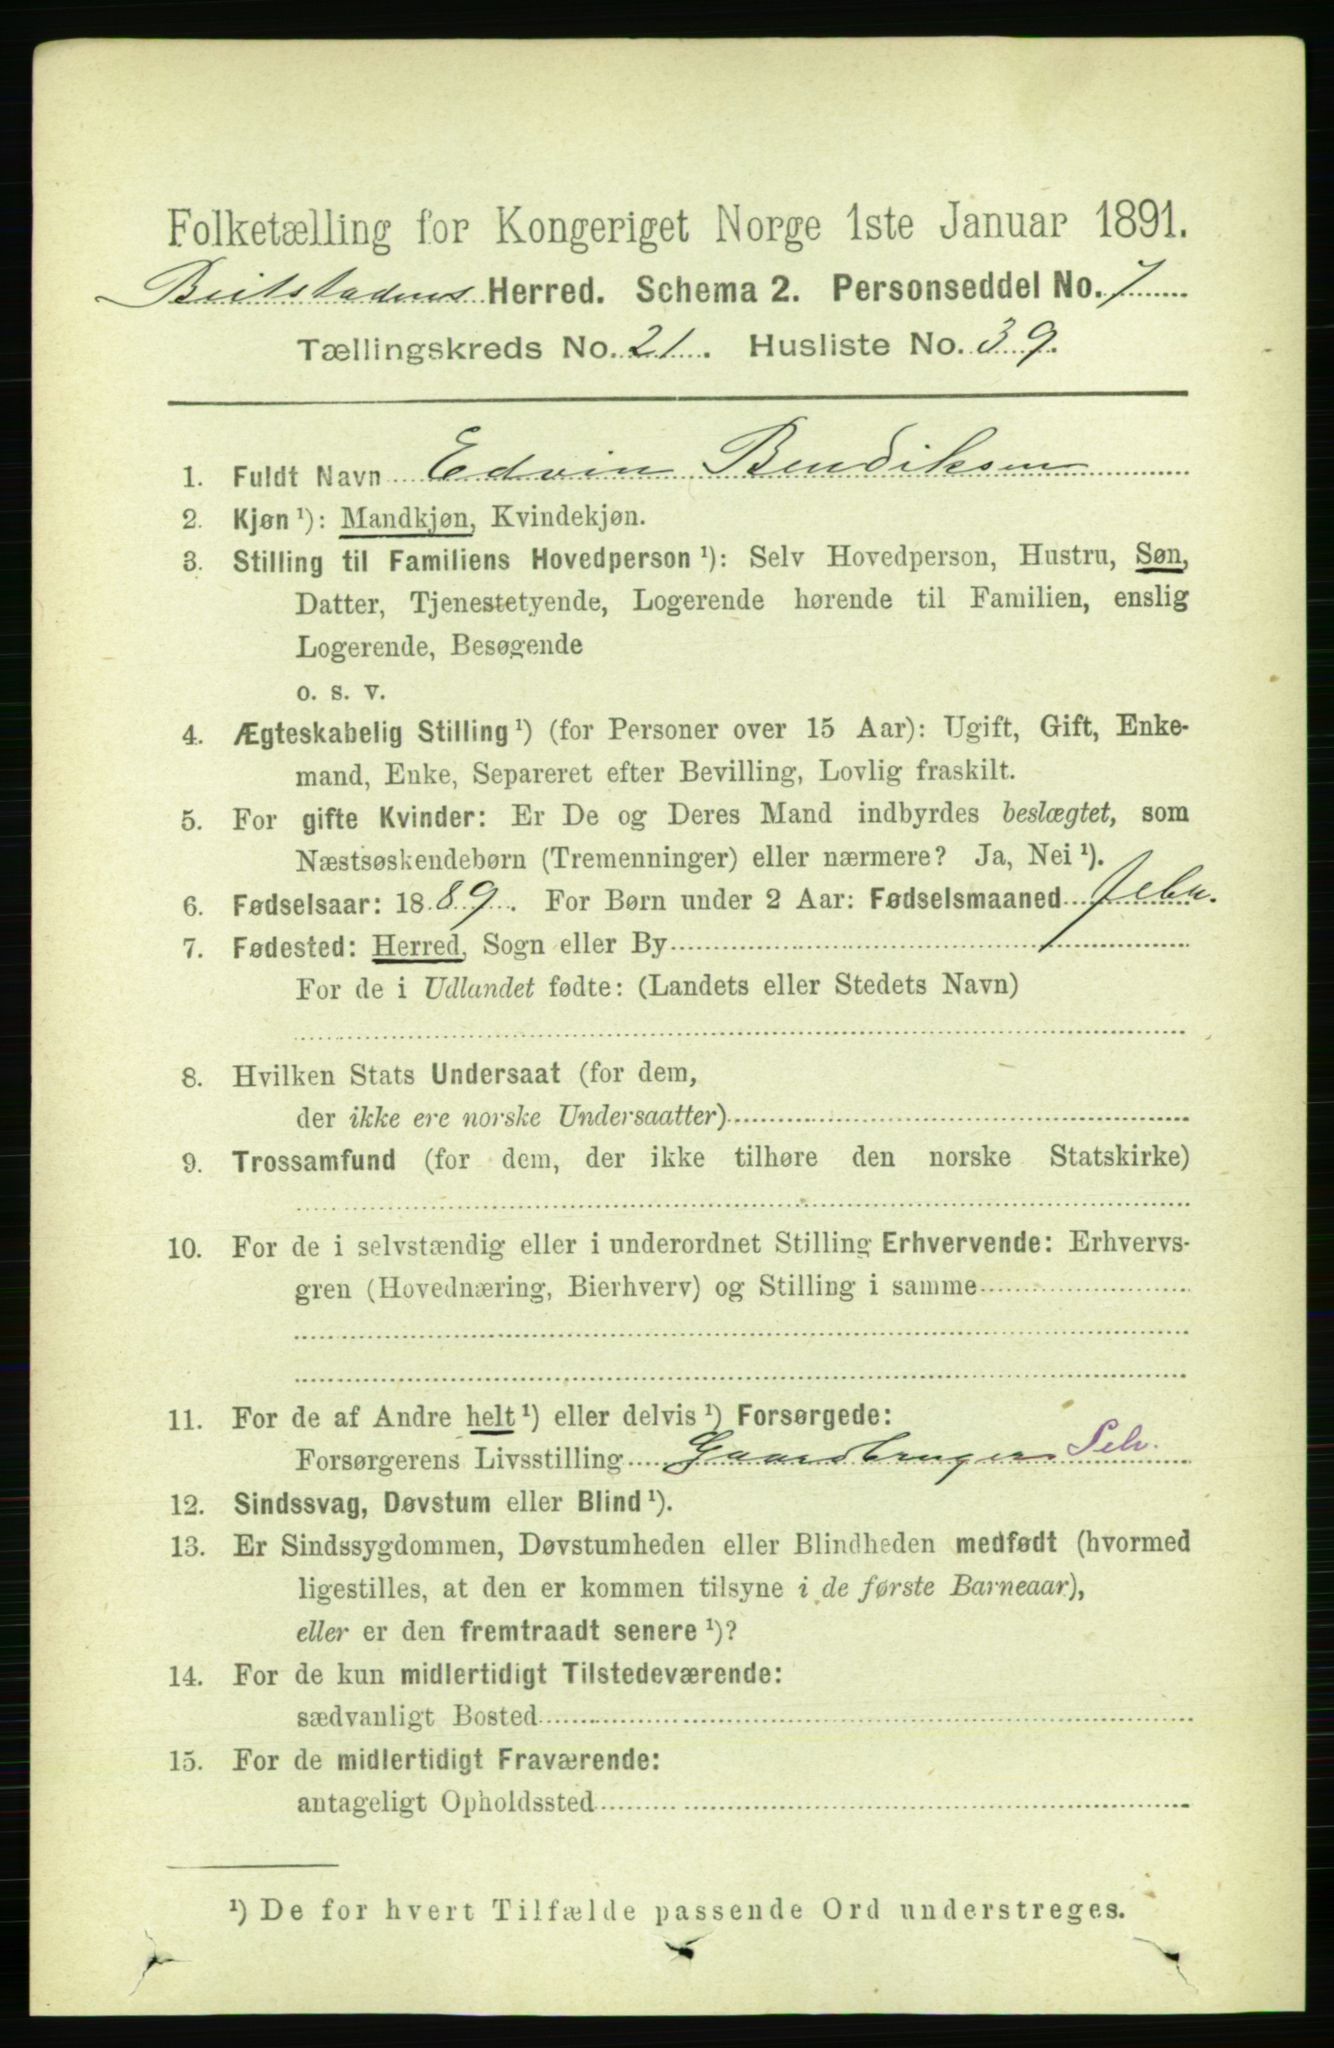 Folketælling for Kongeriget Norge 1ste Januar 1891.
Beitstadens Herred. Schema 2. Personseddel No. 7
Tællingskreds No. 21. Husliste No. 39.
1. Fuldt Navn Edvin Bendiksen
2. Kjøn ¹): Mandkjøn, Kvindekjøn.
3. Stilling til Familiens Hovedperson ¹): Selv Hovedperson, Hustru, Søn,
Datter, Tjenestetyende, Logerende hørende til Familien, enslig
Logerende, Besøgende
o. s. v.
4. Ægteskabelig Stilling ¹) (for Personer over 15 Aar): Ugift, Gift, Enke-
mand, Enke, Separeret efter Bevilling, Lovlig fraskilt.
5. For gifte Kvinder: Er De og Deres Mand indbyrdes beslægtet, som
Næstsøskendebørn (Tremenninger) eller nærmere? Ja, Nei ¹).
6. Fødselsaar: 1889. For Børn under 2 Aar: Fødselsmaaned Febr.
7. Fødested: Herred, Sogn eller By
For de i Udlandet fødte: (Landets eller Stedets Navn)
8. Hvilken Stats Undersaat (for dem,
der ikke ere norske Undersaatter)
9. Trossamfund (for dem, der ikke tilhøre den norske Statskirke)
10. For de i selvstændig eller i underordnet Stilling Erhvervende: Erhvervs-
gren (Hovednæring, Bierhverv) og Stilling i samme
11. For de af Andre helt ¹) eller delvis ¹) Forsørgede:
Forsørgerens Livsstilling Gaardbruger Selv.
12. Sindssvag, Døvstum eller Blind ¹).
13. Er Sindssygdommen, Døvstumheden eller Blindheden medfødt (hvormed
ligestilles, at den er kommen tilsyne i de første Barneaar),
eller er den fremtraadt senere ¹)?
14. For de kun midlertidigt Tilstedeværende:
sædvanligt Bosted
15. For de midlertidigt Fraværende:
antageligt Opholdssted
¹) De for hvert Tilfælde passende Ord understreges.